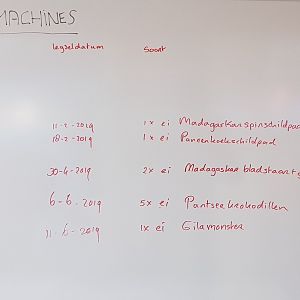 MACHINES
legseldatum Soort
11-2-2019 1x ei Madagaskar spinschildpad
18-2-2019 1x ei Pannenkoekschildpad
30-4-2019 2x ei Madagaskar bladstaart
6-6-2019 5x ei Pantserkrokodillen
11-6-2019 1x ei Gilamonster